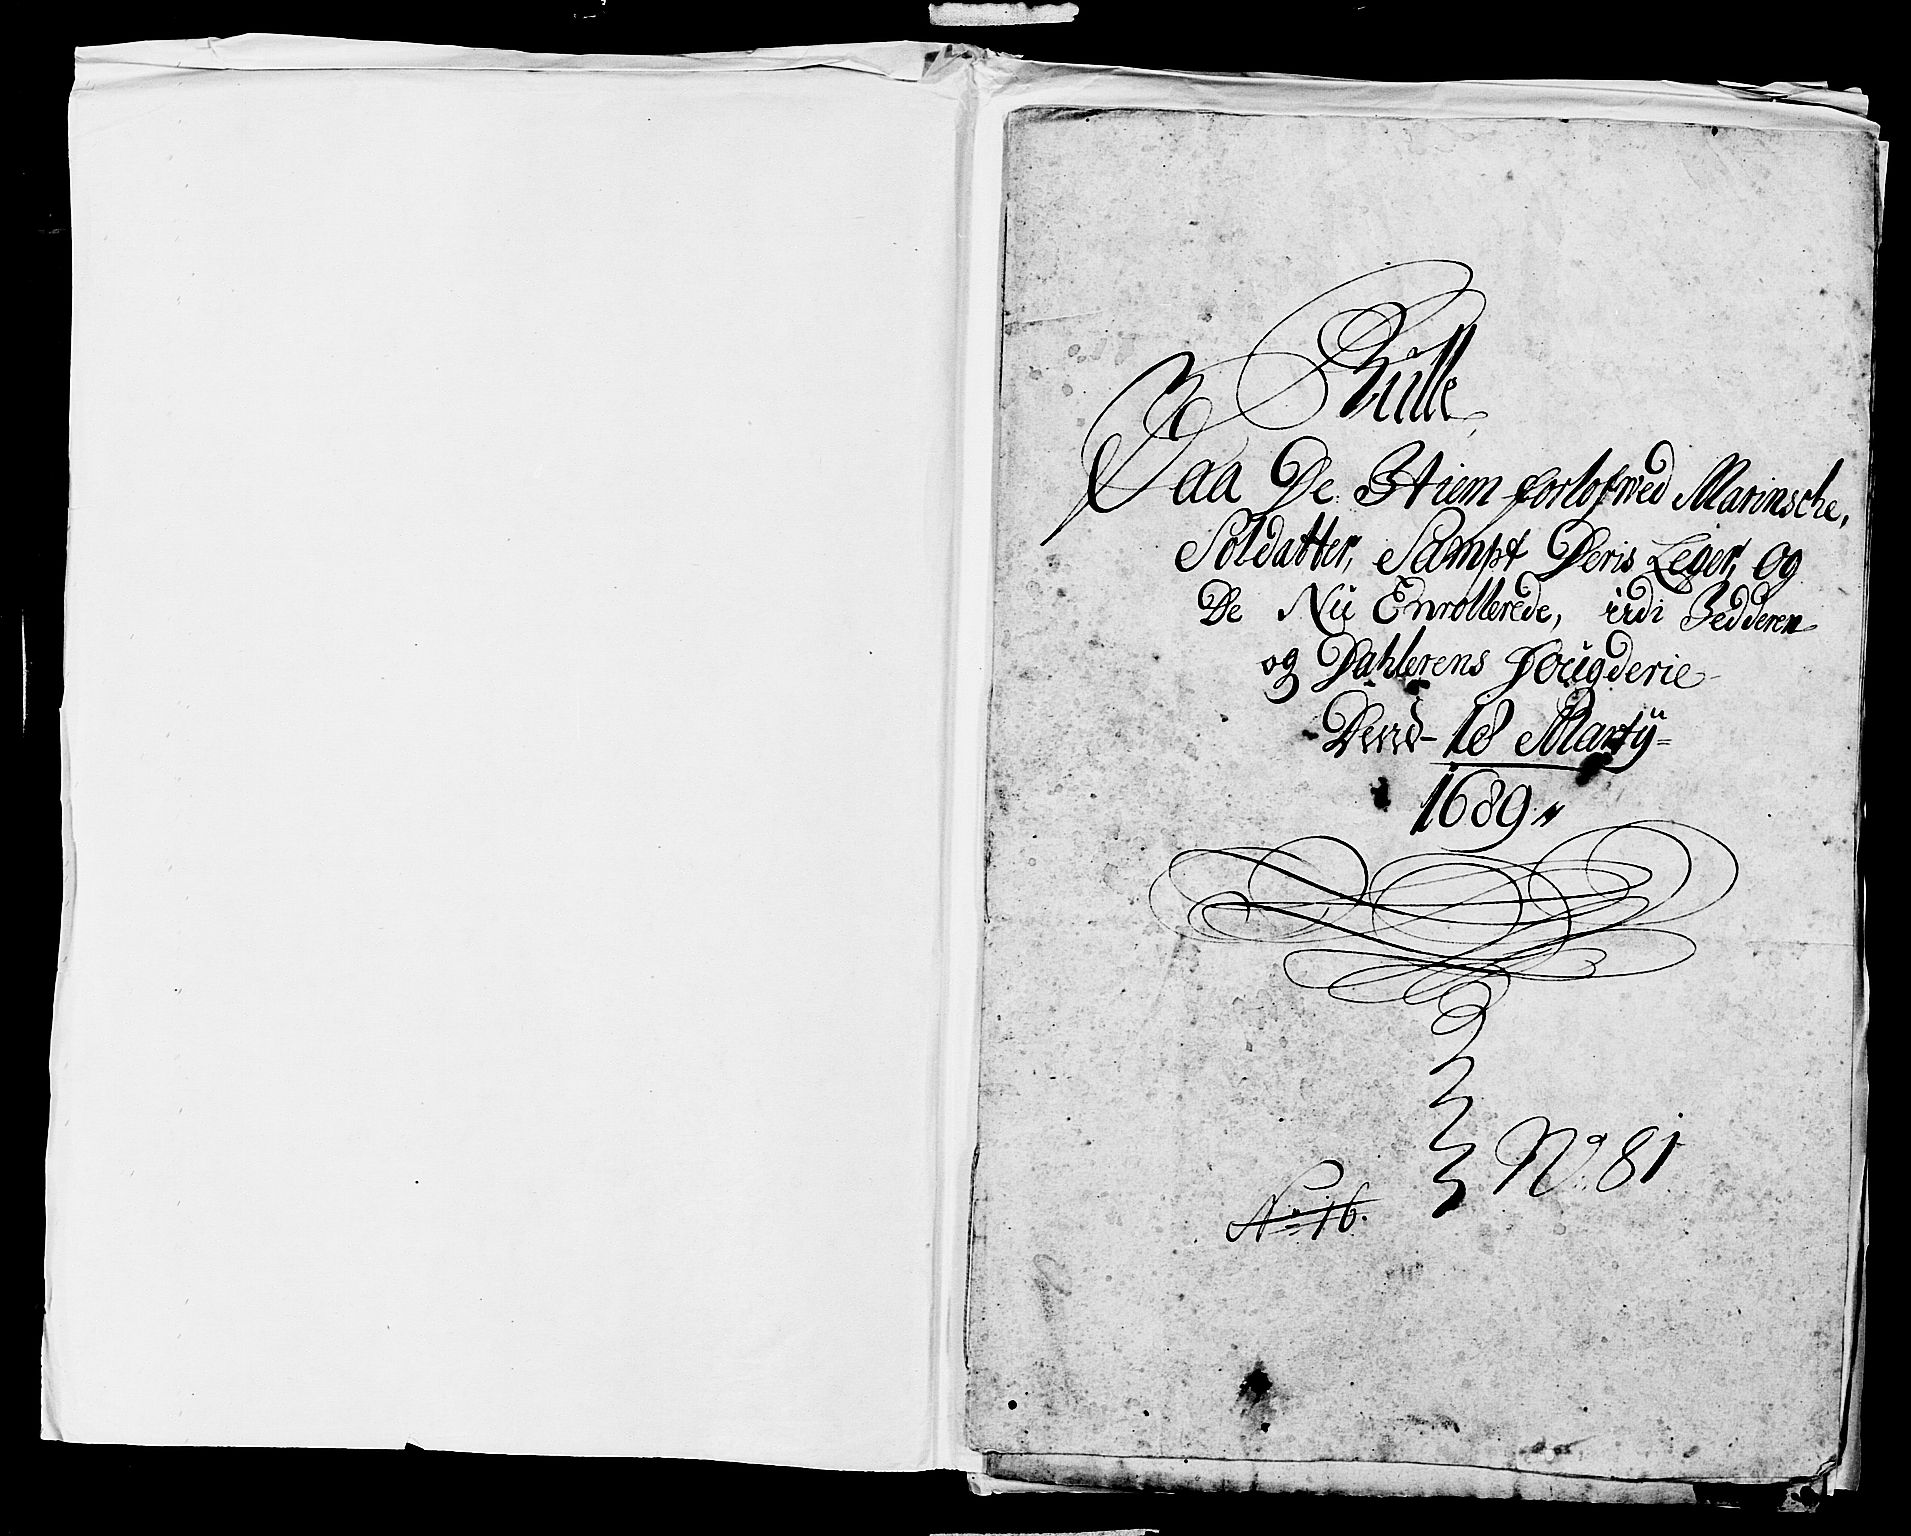 Rulle
Paa De Hiem forlofwed Marinsche,
Soldatter, Sampt Deris Leger, og
De Nü Enrollerede, üdi Jedderen
og Dahlerens Fougderie
Dend 18 Martÿ
1689
No 81
No 16.